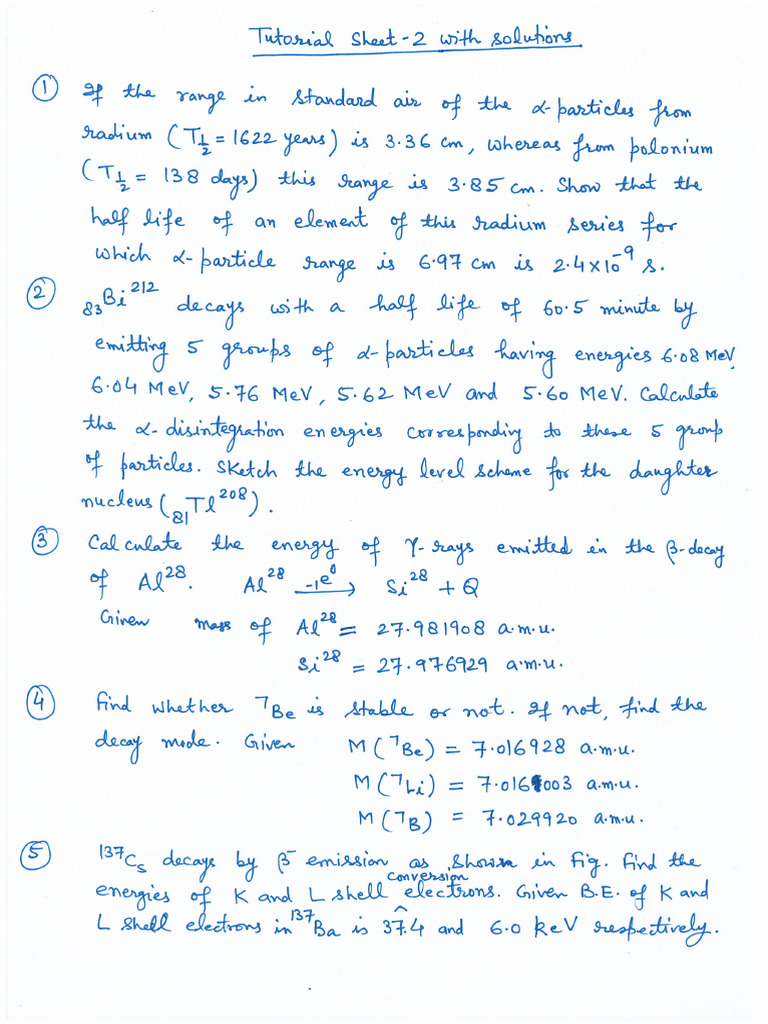 Tutorial Sheet-2 with solutions
① If the range in standard air of the α-particles from
radium (T½ = 1622 years) is 3.36 cm, whereas from polonium
(T½ = 138 days) this range is 3.85 cm. Show that the
half life of an element of this radium series for
which α-particle range is 6.97 cm is 2.4×10⁻⁹ s.
② ₈₃Bi²¹² decays with a half life of 60.5 minute by
emitting 5 groups of α-particles having energies 6.08 MeV,
6.04 MeV, 5.76 MeV, 5.62 MeV and 5.60 MeV. Calculate
the α-disintegration energies corresponding to these 5 group
of particles. Sketch the energy level scheme for the daughter
nucleus (₈₁Tl²⁰⁸).
③ Calculate the energy of γ-rays emitted in the β-decay
of Al²⁸. Al²⁸ ₋₁e⁰→ Si²⁸ + Q
Given mass of Al²⁸ = 27.981908 a.m.u.
Si²⁸ = 27.976929 a.m.u.
④ Find whether ⁷Be is stable or not. If not, find the
decay mode. Given M(⁷Be) = 7.016928 a.m.u.
M(⁷Li) = 7.016003 a.m.u.
M(⁷B) = 7.029920 a.m.u.
⑤ ¹³⁷Cs decays by β⁻ emission as shown in Fig. Find the
energies of K and L shell conversion electrons. Given B.E. of K and
L shell electrons in ¹³⁷Ba is 37.4 and 6.0 keV respectively.